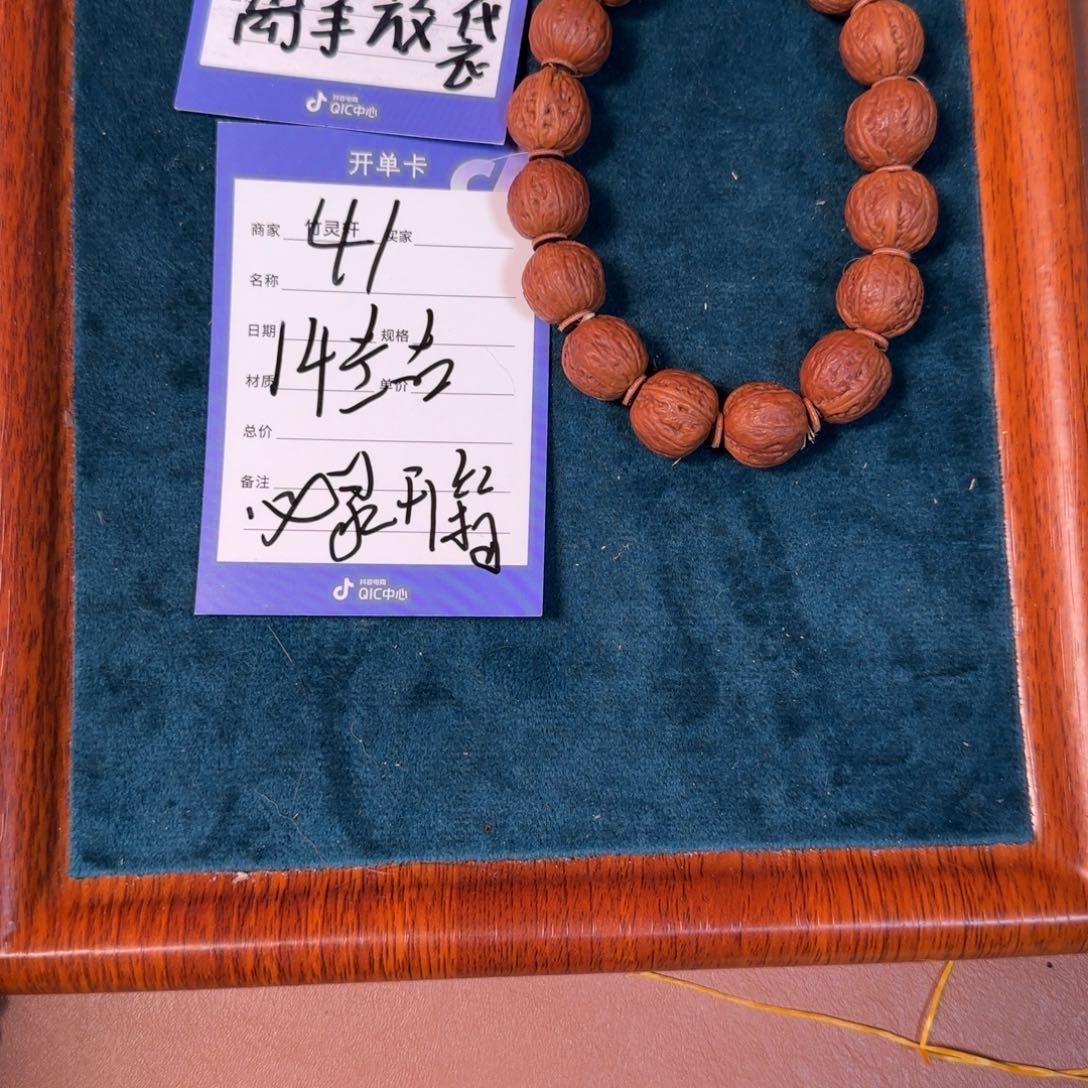 离手放袋
抖音电商
QIC中心
开单卡
商家 竹灵轩 买家
41
名称
日期 规格
14
材质 单价
总价
备注
必录开箱
抖音电商
QIC中心